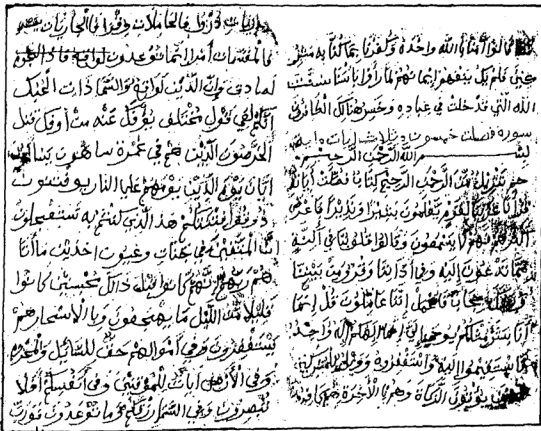 قالوا آمنا بالله واحده وكفرنا بما كنا به مشر
كين فلم يك ينفعهم إيمانهم لما رأوا بأسنا سنت
الله التي قد خلت في عباده وخسر هنالك الكافرون
سورة فصلت خمسون وثلاث ايات
بسم الله الرحمن الرحيم
حم تنزيل من الرحمن الرحيم كتابا فصلت آياته
قرآنا عربيا لقوم يعلمون بشيرا ونذيرا فاعرض
أكثرهم فهم لا يسمعون وقالوا قلوبنا في أكنة
مما تدعون إليه وفي آذاننا وقر ومن بيننا
وبينك حجابا فاعمل إننا عاملون قل إنما
أنا بشر مثلكم يوحى إلي أنما إلهكم إله واحد
فاستقيموا إليه واستغفروه وويل للمشركين
يؤتون الزكاة وهم بالآخرة هم كافرو
والذاريات ذروا فالحاملات وقرا فالجاريات
فالمقسمات أمرا إنما توعدون
لصادق وإن الدين لواقع والسما ذات الحبك
إنكم لفي قول مختلف يؤفك عنه من أفك قتل
الخرصون الذين هم في غمرة ساهون يسألون
أيان يوم الدين يوم هم على النار يفتنون
ذوقوا فتنتكم هذا الذي كنتم به تستعجلون
إن المتقين في جنات وعيون اخذين ما أتا
هم ربهم إنهم كانوا قبل ذالك محسنين كانوا
قليلا من الليل ما يهجعون وبالأسحار هم
يستغفرون وفي أموالهم حق للسائل والمحروم
وفي الأرض آيات للموقنين وفي أنفسكم أفلا
تبصرون وفي السما رزقكم وما توعدون فورب